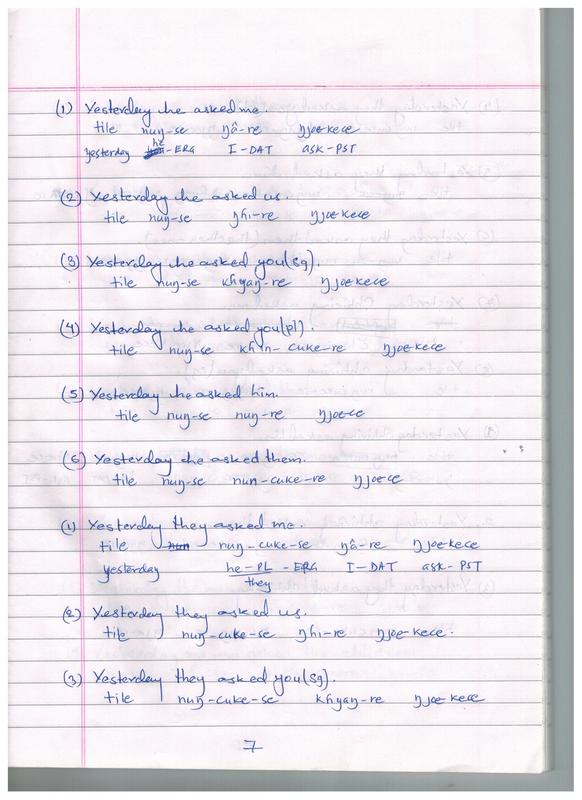 (1) Yesterday he asked me.
tile nuŋ-se ŋâ-re ŋjoe-kece
yesterday he-ERG I-DAT ask-PST
(2) Yesterday he asked us.
tile nuŋ-se ŋhi-re ŋjoe kece
(3) Yesterday he asked you(sg).
tile nuŋ-se khyaŋ-re ŋjoe kece
(4) Yesterday he asked you(pl).
tile nuŋ-se khin-cuke-re ŋjoe kece
(5) Yesterday he asked him.
tile nuŋ-se nuŋ-re ŋjoe-ce
(6) Yesterday he asked them.
tile nuŋ-se nun-cuke-re ŋjoe-ce
(1) Yesterday they asked me.
tile nuŋ-cuke-se ŋâ-re ŋjoe-kece
yesterday he-PL-ERG I-DAT ask-PST
they
(2) Yesterday they asked us.
tile nuŋ-cuke-se ŋhi-re ŋjoe-kece.
(3) Yesterday they asked you(sg).
tile nuŋ-cuke-se khyaŋ-re ŋjoe kece
7